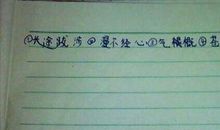 ①长途跋涉②漫不经心③气概④